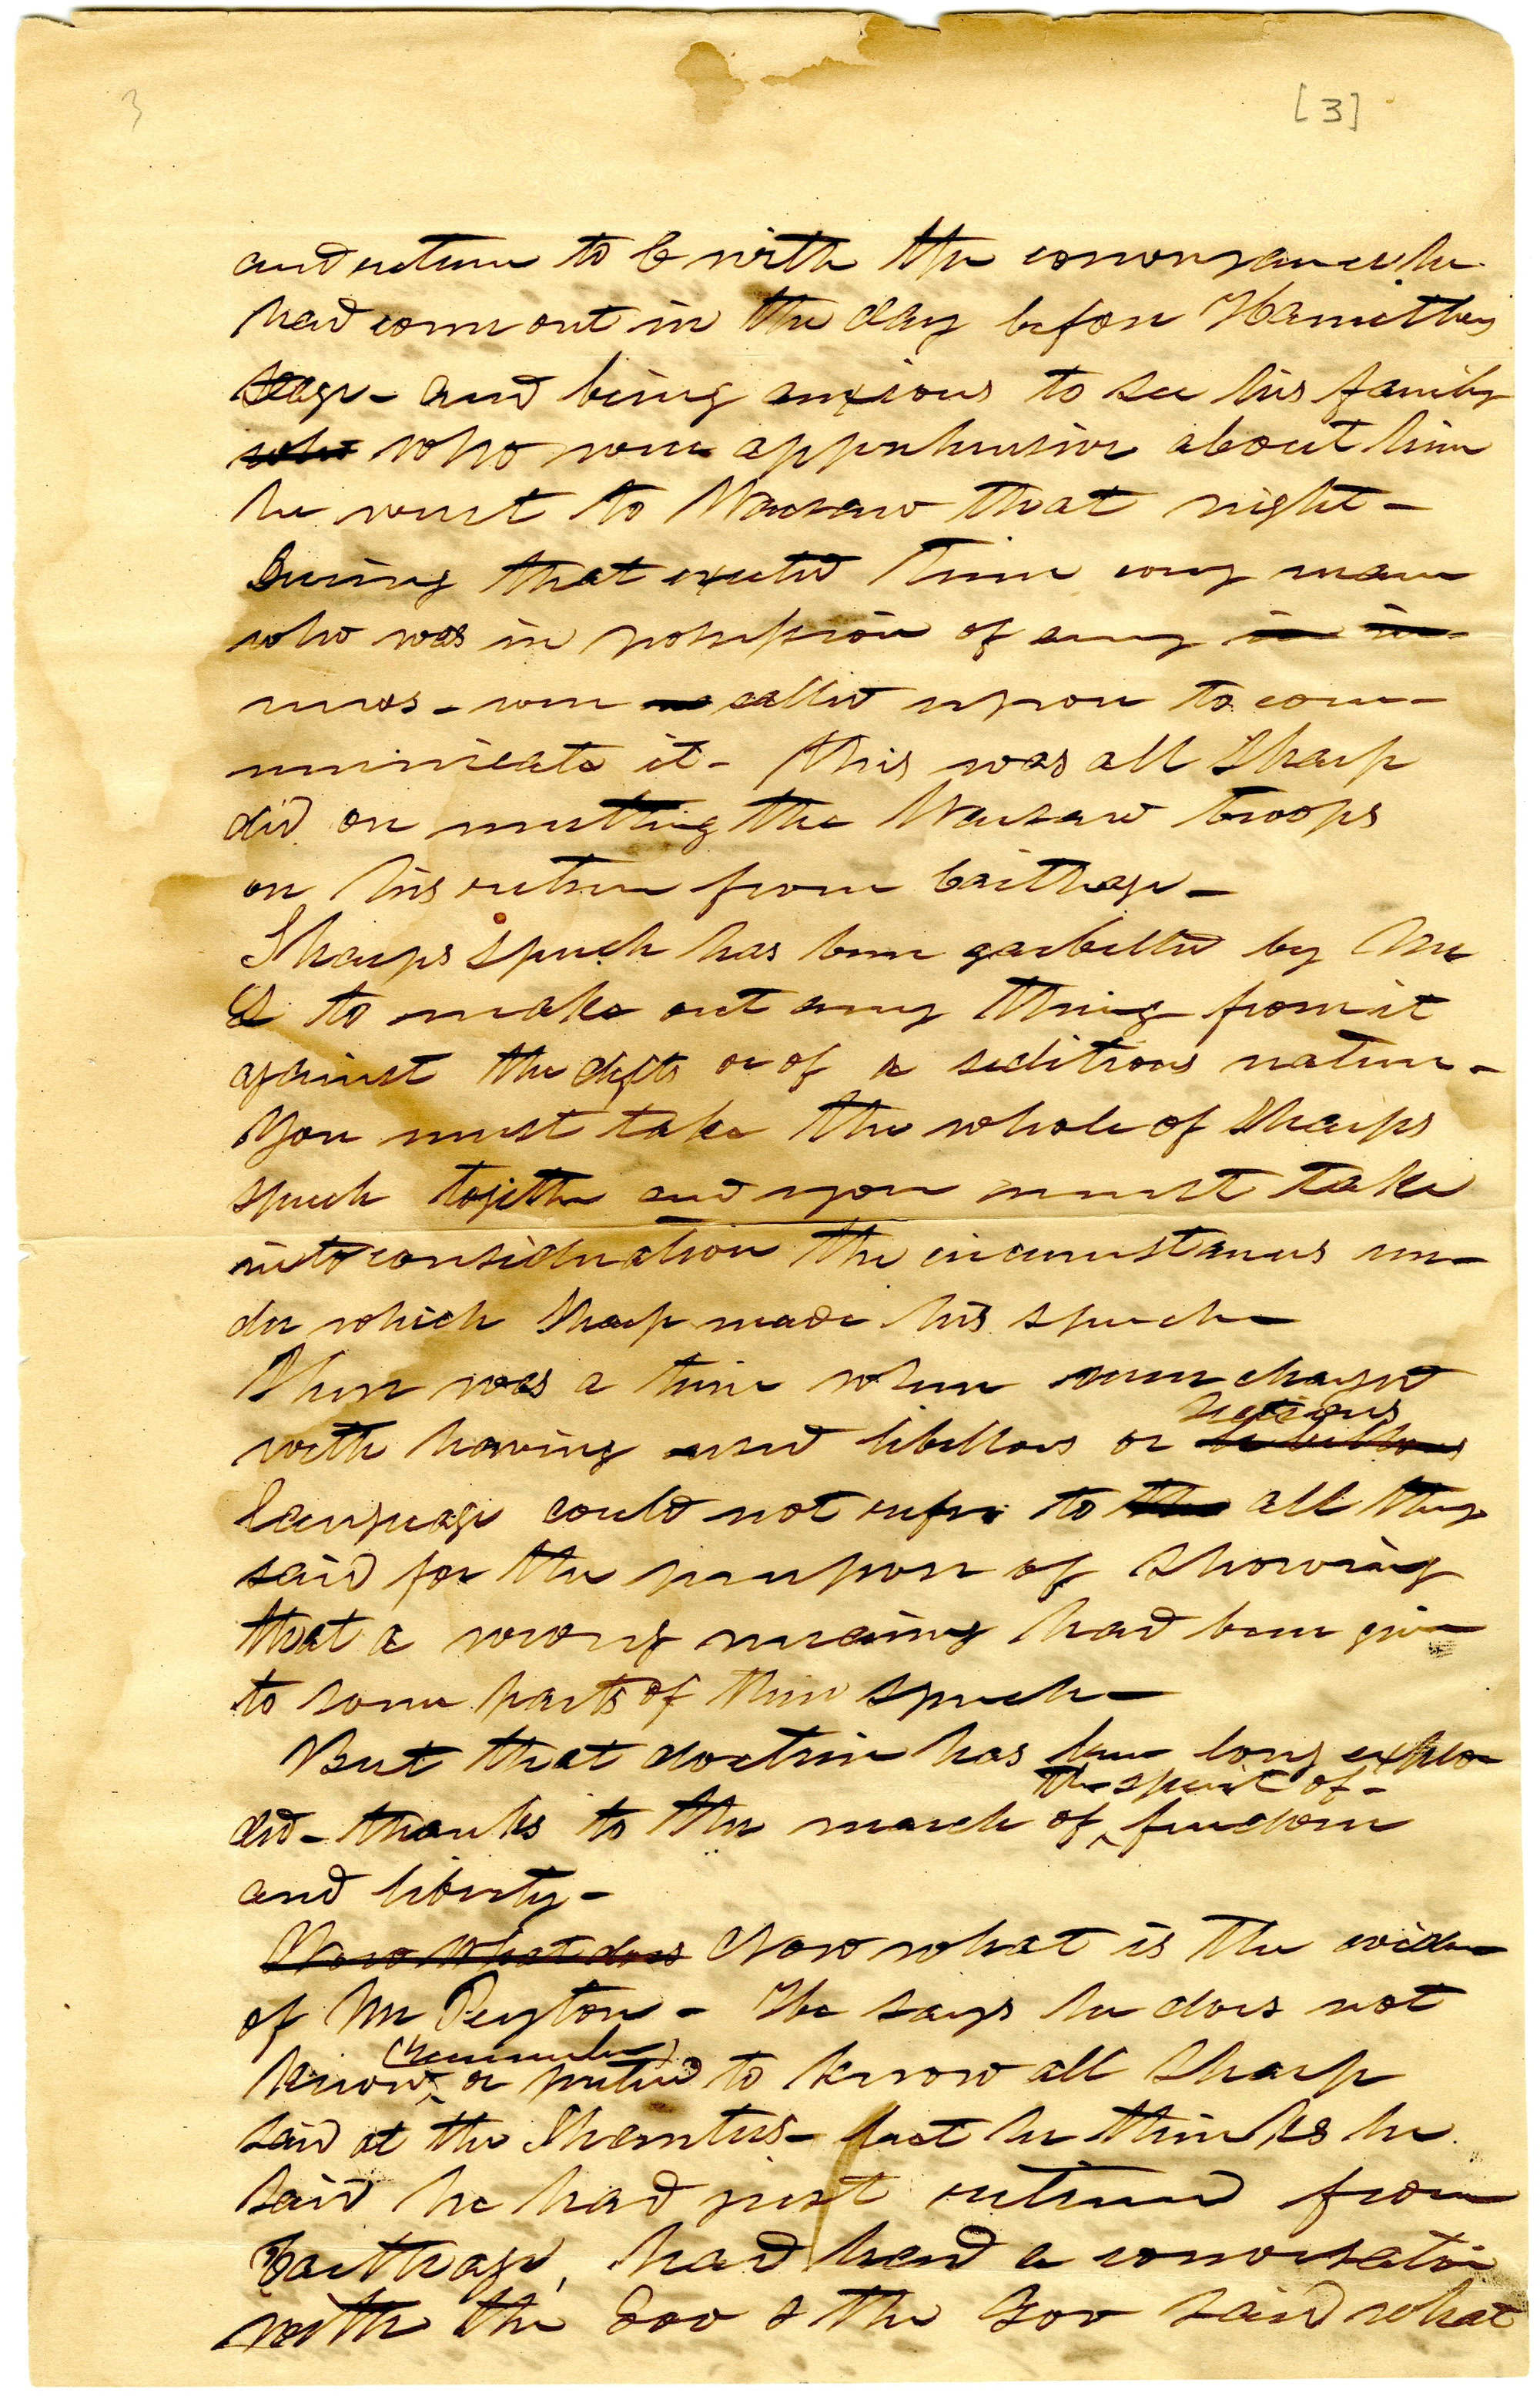 3
[3]
and return to C with the conveyance he
had come out in the day before Hamiltons
stage - and being anxious to see his family
who who were apprehensive about him
he went to Warsaw that night -
During that excited time any man
who was in possession of any in in
news - were called upon to com-
municate it - this was all Sharp
did on meeting the Warsaw troops
on his return from Carthage -
Sharps speech has been garbelled by Mr
to make out any thing from it
against the defts or of a seditious nature -
You must take the whole of Sharps
speech together and you must take
into consideration the circumstances un-
der which Sharp made his speech
There was a time when men charged
with having used libellous or libellous
language could not refer to the all they
said for the purpose of showing
that a wrong meaning had been given
to some parts of their speech -
But that doctrine has been long explo
the spirit of -
ded - thanks to the march of ^ freedom
and liberty -
Now what does Now what is the evidence
of Mr Peyton - He says he does not
(remember)
know ^ or pretend to know all Sharp
said at the Shanties - but he thinks he
said he had just returned from
Carthage, had had a conversation
with the Gov & the Gov said what